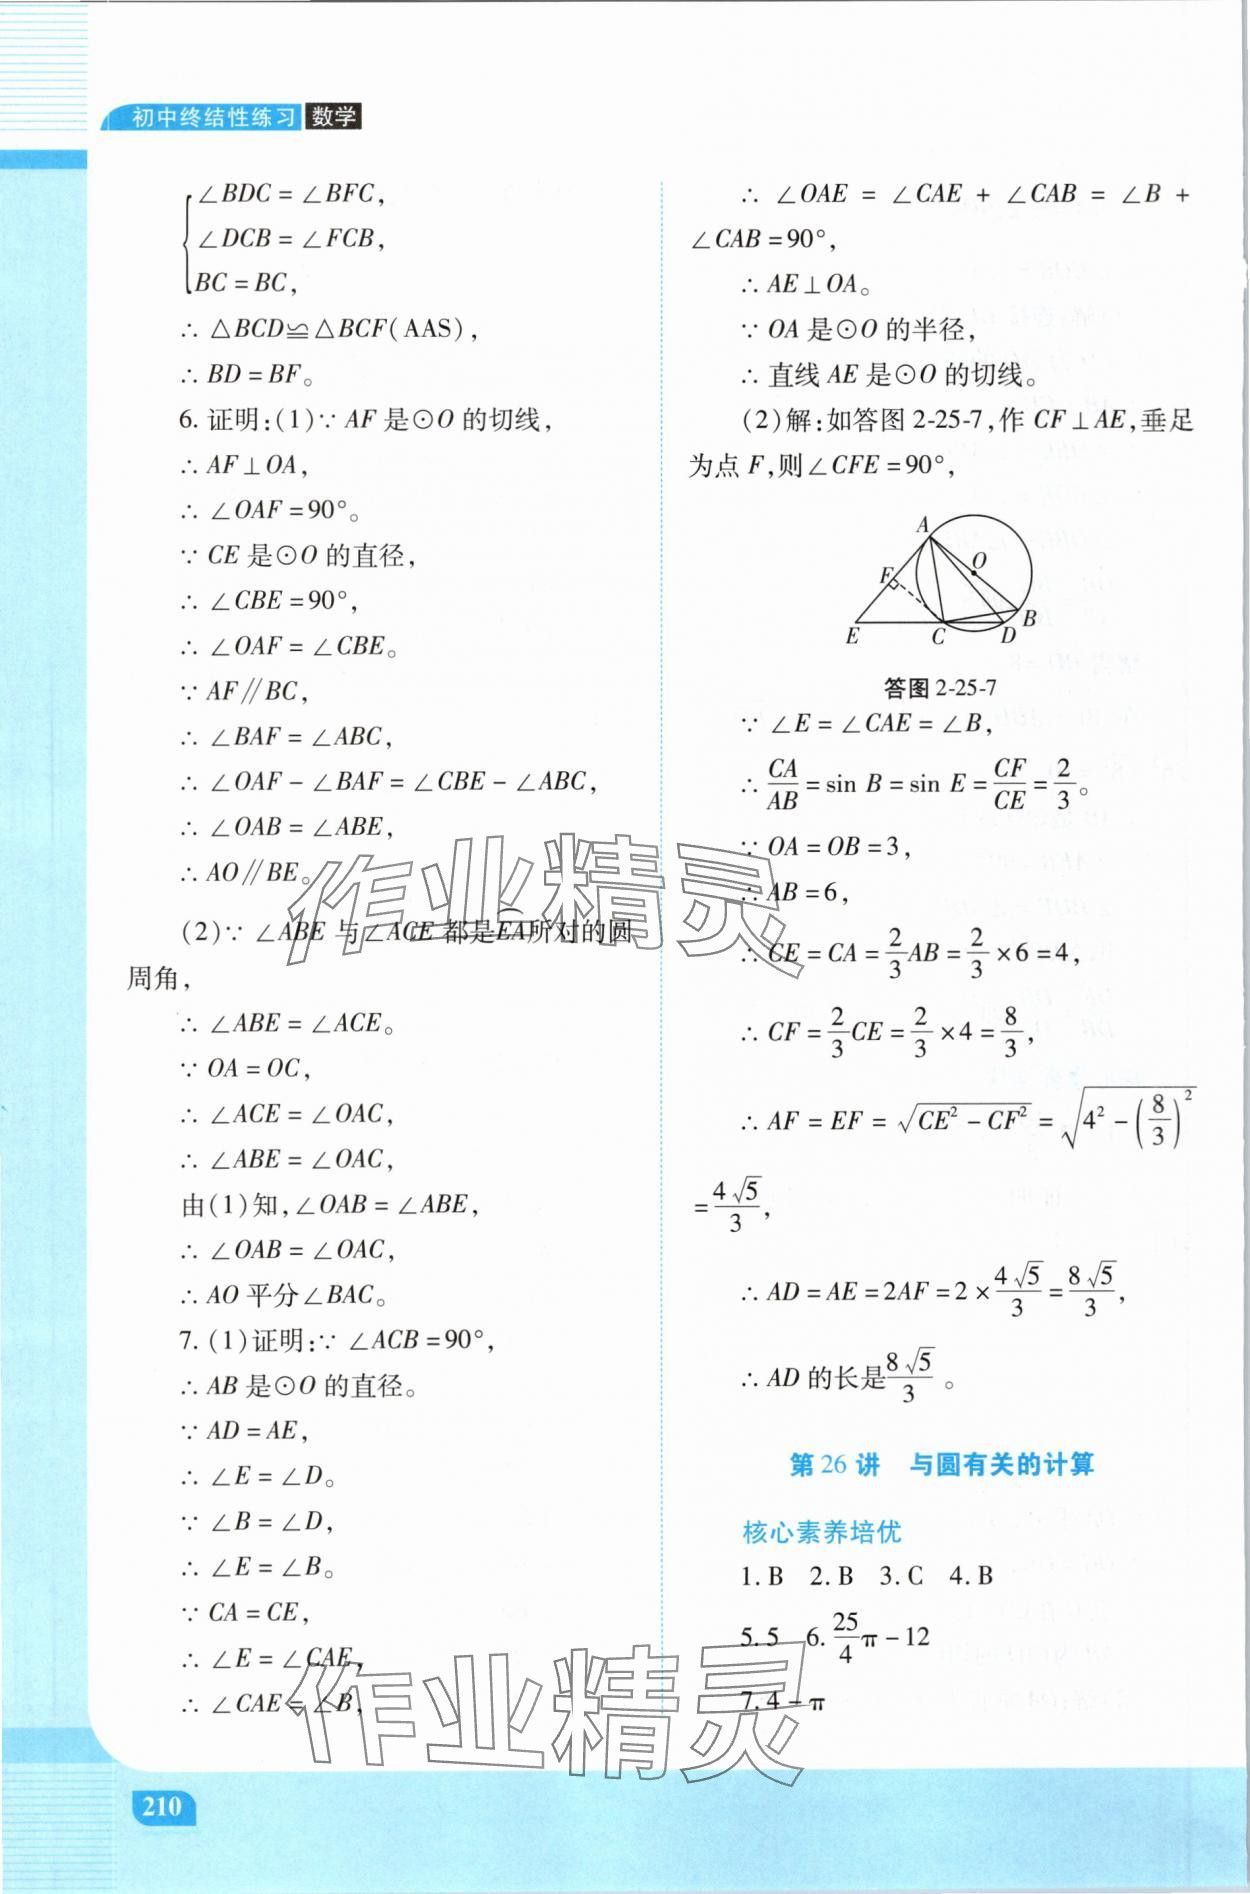 初中终结性练习 数学
∠BDC=∠BFC,
∠DCB=∠FCB,
BC=BC,
∴△BCD≌△BCF(AAS),
∴BD=BF。
6.证明:(1)∵AF是⊙O的切线,
∴AF⊥OA,
∴∠OAF=90°。
∵CE是⊙O的直径,
∴∠CBE=90°,
∴∠OAF=∠CBE。
∵AF∥BC,
∴∠BAF=∠ABC,
∴∠OAF-∠BAF=∠CBE-∠ABC,
∴∠OAB=∠ABE,
∴AO∥BE。
(2)∵∠ABE与∠ACE都是EA所对的圆
周角,
∴∠ABE=∠ACE。
∵OA=OC,
∴∠ACE=∠OAC,
∴∠ABE=∠OAC,
由(1)知,∠OAB=∠ABE,
∴∠OAB=∠OAC,
∴AO平分∠BAC。
7.(1)证明:∵∠ACB=90°,
∴AB是⊙O的直径。
∵AD=AE,
∴∠E=∠D。
∵∠B=∠D,
∴∠E=∠B。
∵CA=CE,
∴∠E=∠CAE,
∴∠CAE=∠B,
∴∠OAE=∠CAE+∠CAB=∠B+
∠CAB=90°,
∴AE⊥OA。
∵OA是⊙O的半径,
∴直线AE是⊙O的切线。
(2)解:如答图2-25-7,作CF⊥AE,垂足
为点F,则∠CFE=90°,
A
O
F
B
E C D
答图2-25-7
∵∠E=∠CAE=∠B,
∴CA/AB=sin B=sin E=CF/CE=2/3。
∵OA=OB=3,
∴AB=6,
∴CE=CA=2/3AB=2/3×6=4,
∴CF=2/3CE=2/3×4=8/3,
∴AF=EF=√(CE²-CF²)=√(4²-(8/3)²)
=4√5/3,
∴AD=AE=2AF=2×4√5/3=8√5/3,
∴AD的长是8√5/3。
第26讲 与圆有关的计算
核心素养培优
1.B 2.B 3.C 4.B
5.5 6.25/4π-12
7.4-π
作业精灵
作业精灵
210